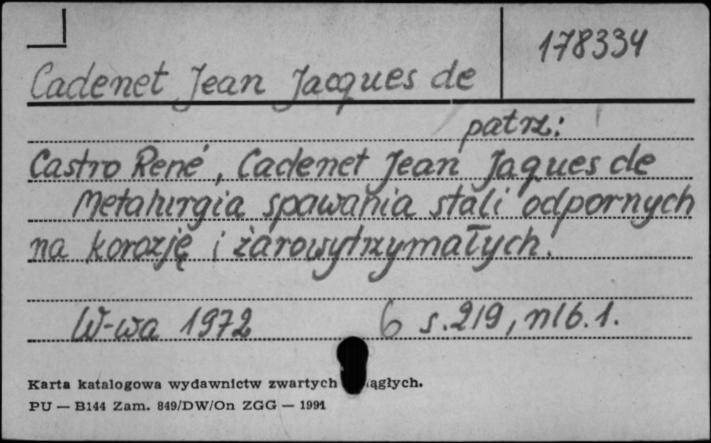 178334
Cadenet Jean Jacques de
patrz:
Castro René, Cadenet Jean Jaques de
Metalurgia spawania stali odpornych
na korozję i żarowytrzymałych.
W-wa 1972 6 s. 219, nlb. 1.
Karta katalogowa wydawnictw zwartych ągłych.
PU — B144 Zam. 849/DW/On ZGG — 1991